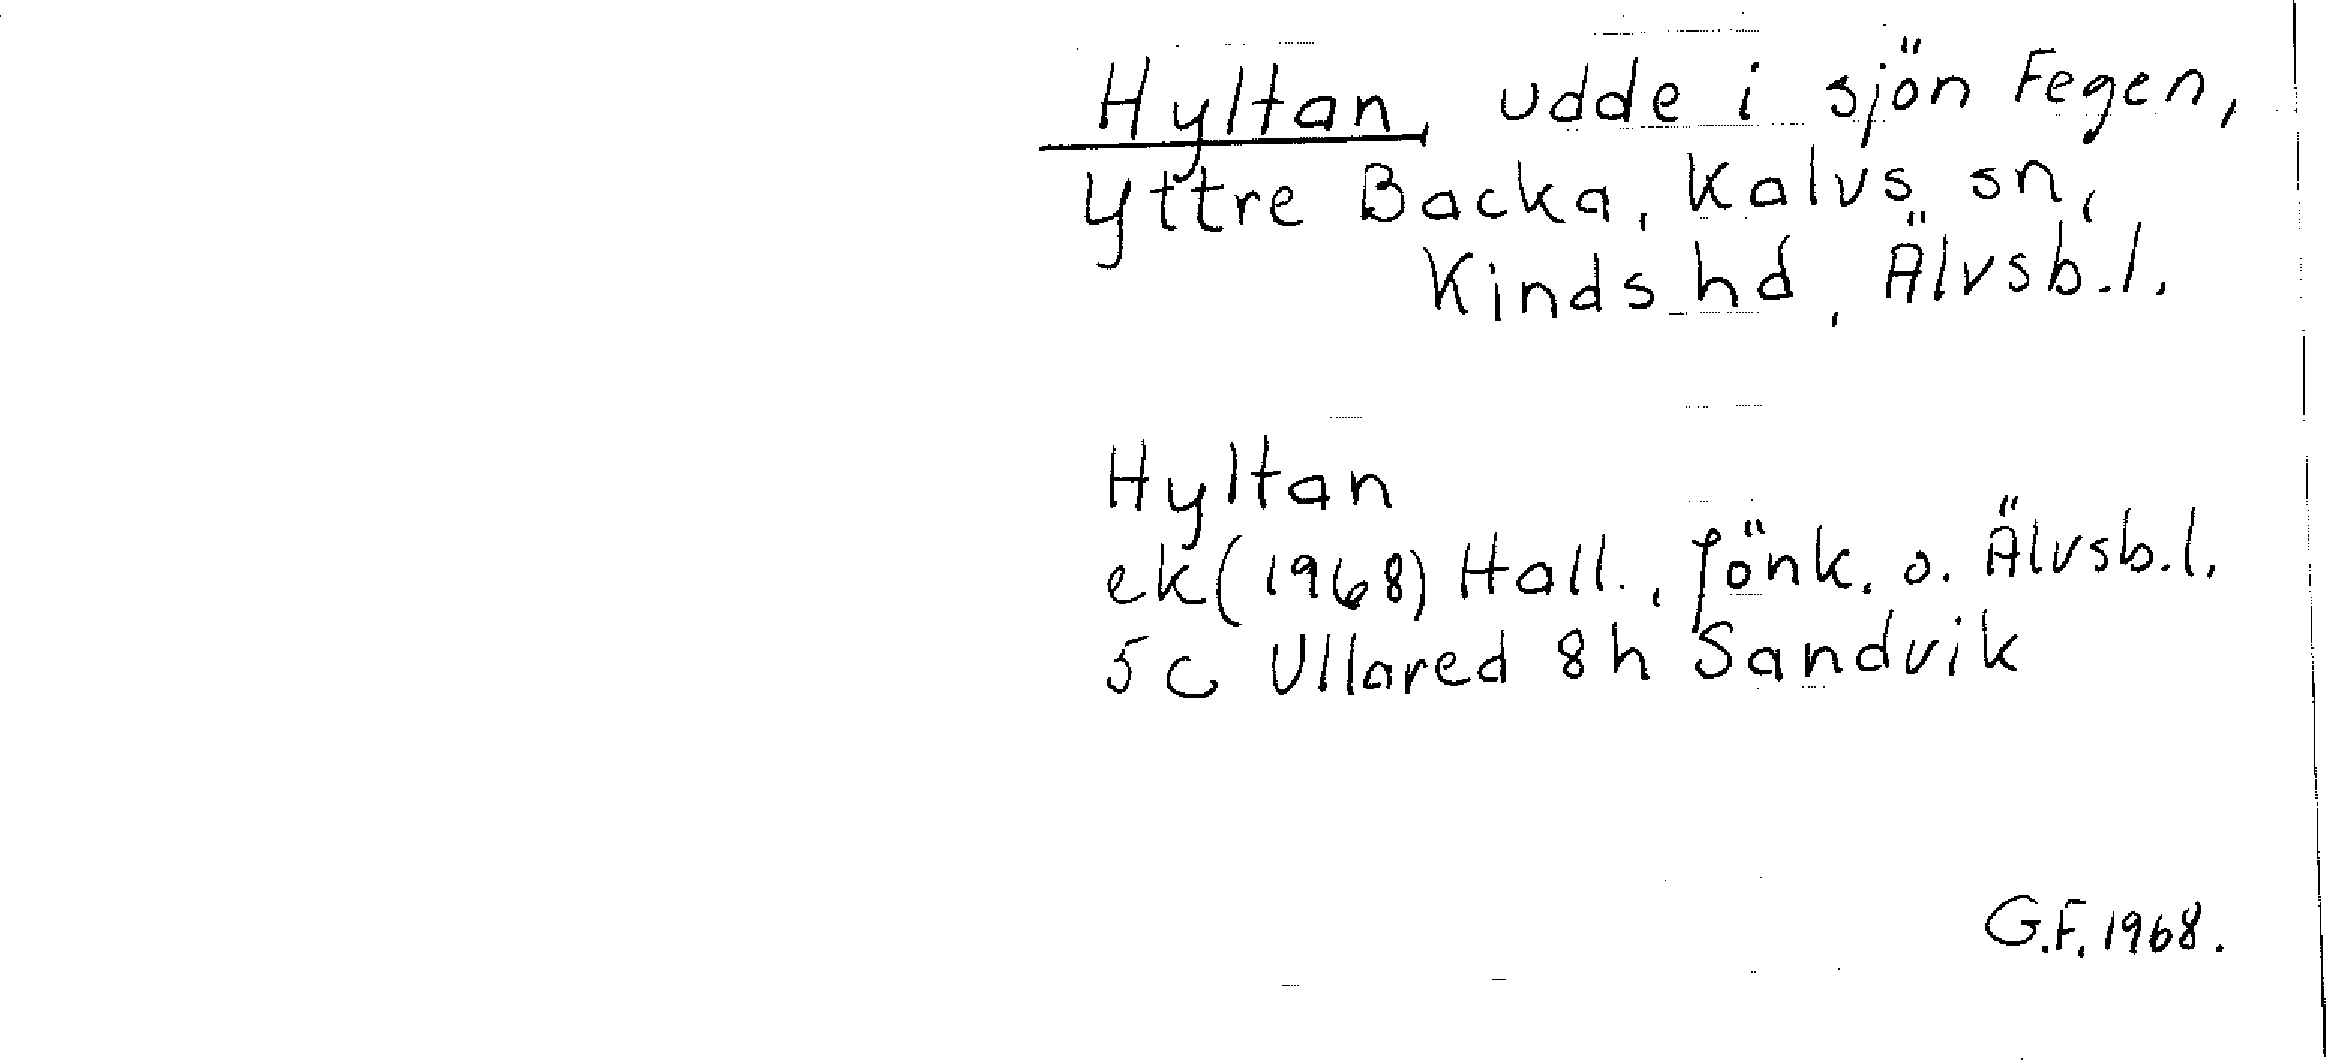 Hyltan, udde i sjön Fegen,
Yttre Backa, Kalvs sn,
Kinds hd, Älvsb.l.
Hyltan
ek (1968) Hall., Jönk. o. Älvsb.l.
5 C Ullared 8h Sandvik
G.F. 1968.